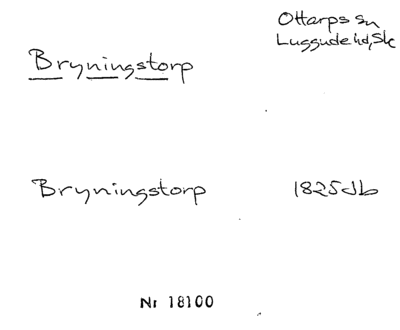 Ottarps sn
Luggude hd, Sk
Bryningstorp
Bryningstorp 1825 Jb
Nr 18100